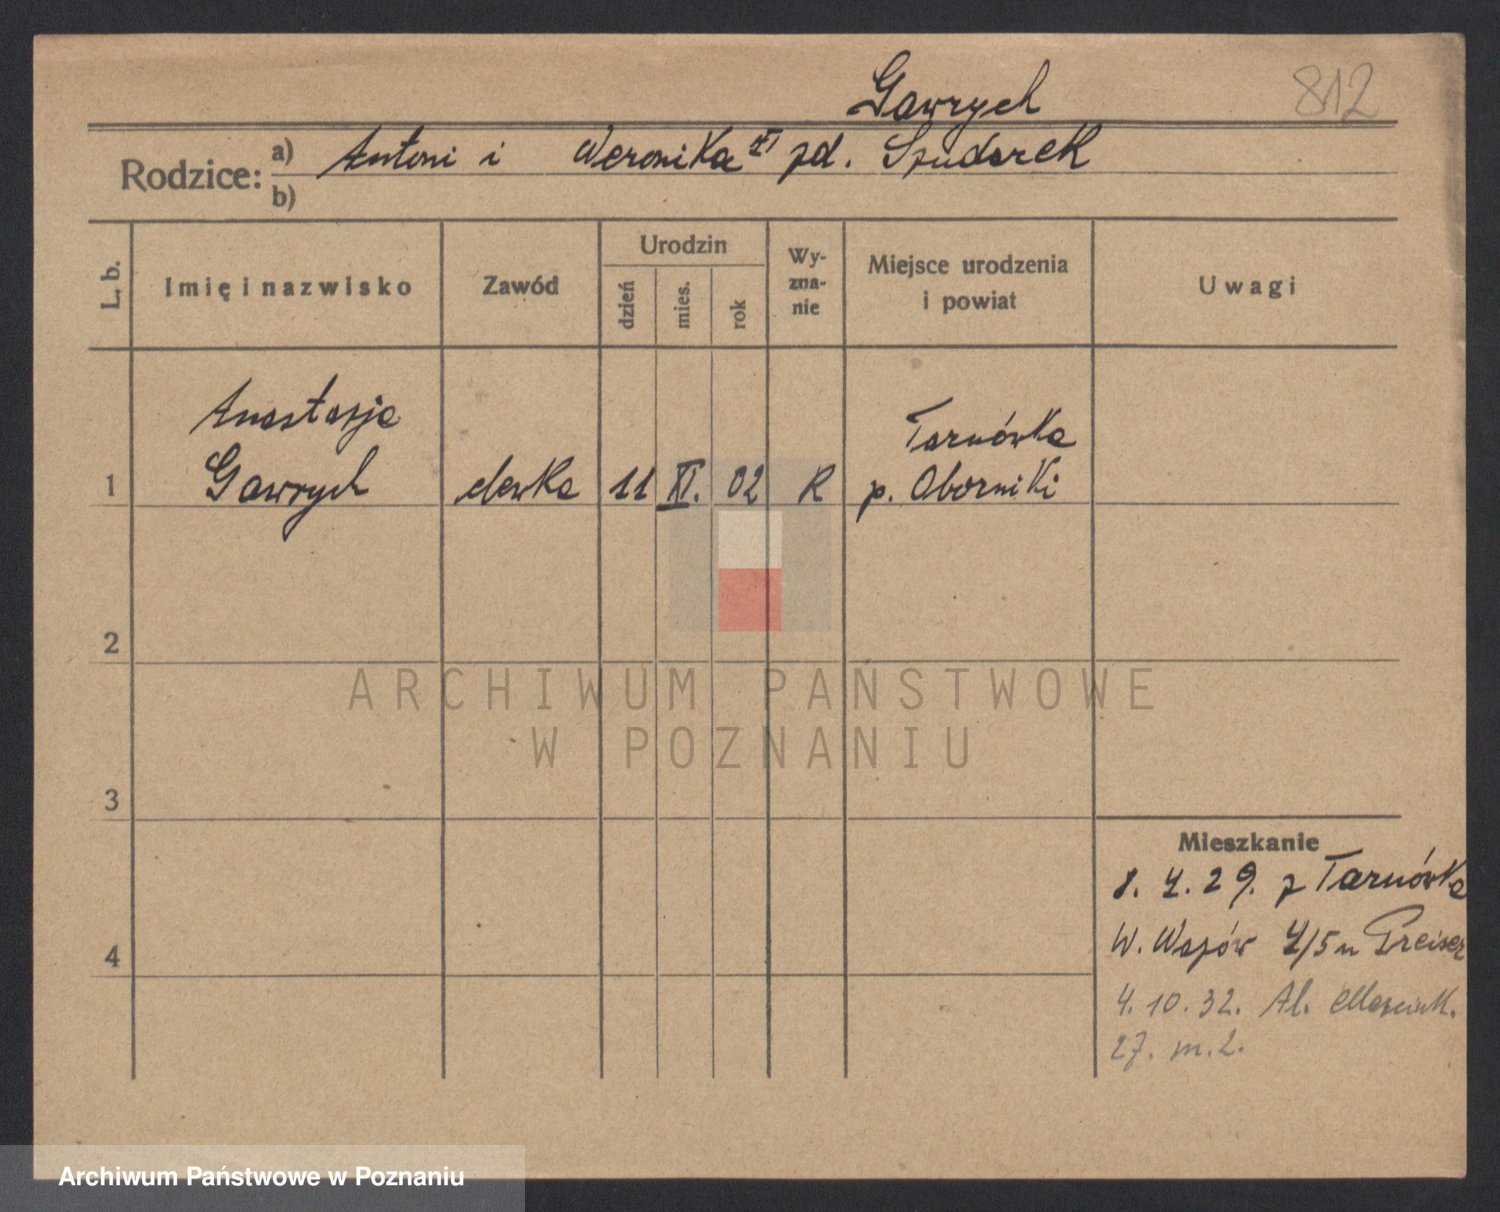 Gawrych
812
Rodzice: a) Antoni i Weronika zd. Szudarek
b)
L. b.
Imię i nazwisko
Zawód
Urodzin
dzień
mies.
rok
Wy-
zna-
nie
Miejsce urodzenia
i powiat
Uwagi
Anastazja
Gawrych
1
11 XI. 02 R
Tarnówka
p. Oborniki
2
3
4
Mieszkanie
8. 4. 29. z Tarnówka
W. Wazów 4/5 u Preiser
4. 10. 32. Al. Marcink.
27. m. 2.
ARCHIWUM PAŃSTWOWE
W POZNANIU
Archiwum Państwowe w Poznaniu